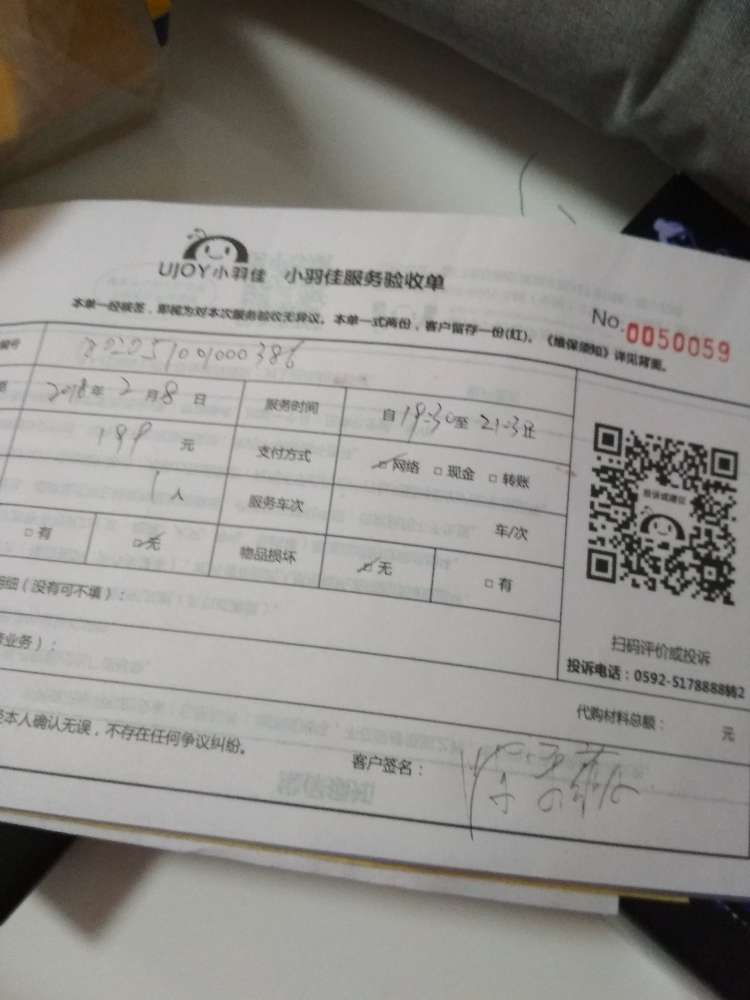 UJOY小羽佳 小羽佳服务验收单
本单一经核签，即视为对本次服务验收无异议。本单一式两份，客户留存一份(红)。《维保须知》详见背面。
No.0050059
编号
2018年2月8日 服务时间 自19:30至21:3止
199元 支付方式 网络 现金 转账
1人 服务车次 车/次
有 无 物品损坏 无 有
投诉或建议
扫码评价或投诉
投诉电话：0592-5178888转2
明细（没有可不填）：
业务）：
代购材料总额： 元
本人确认无误，不存在任何争议纠纷。
客户签名：